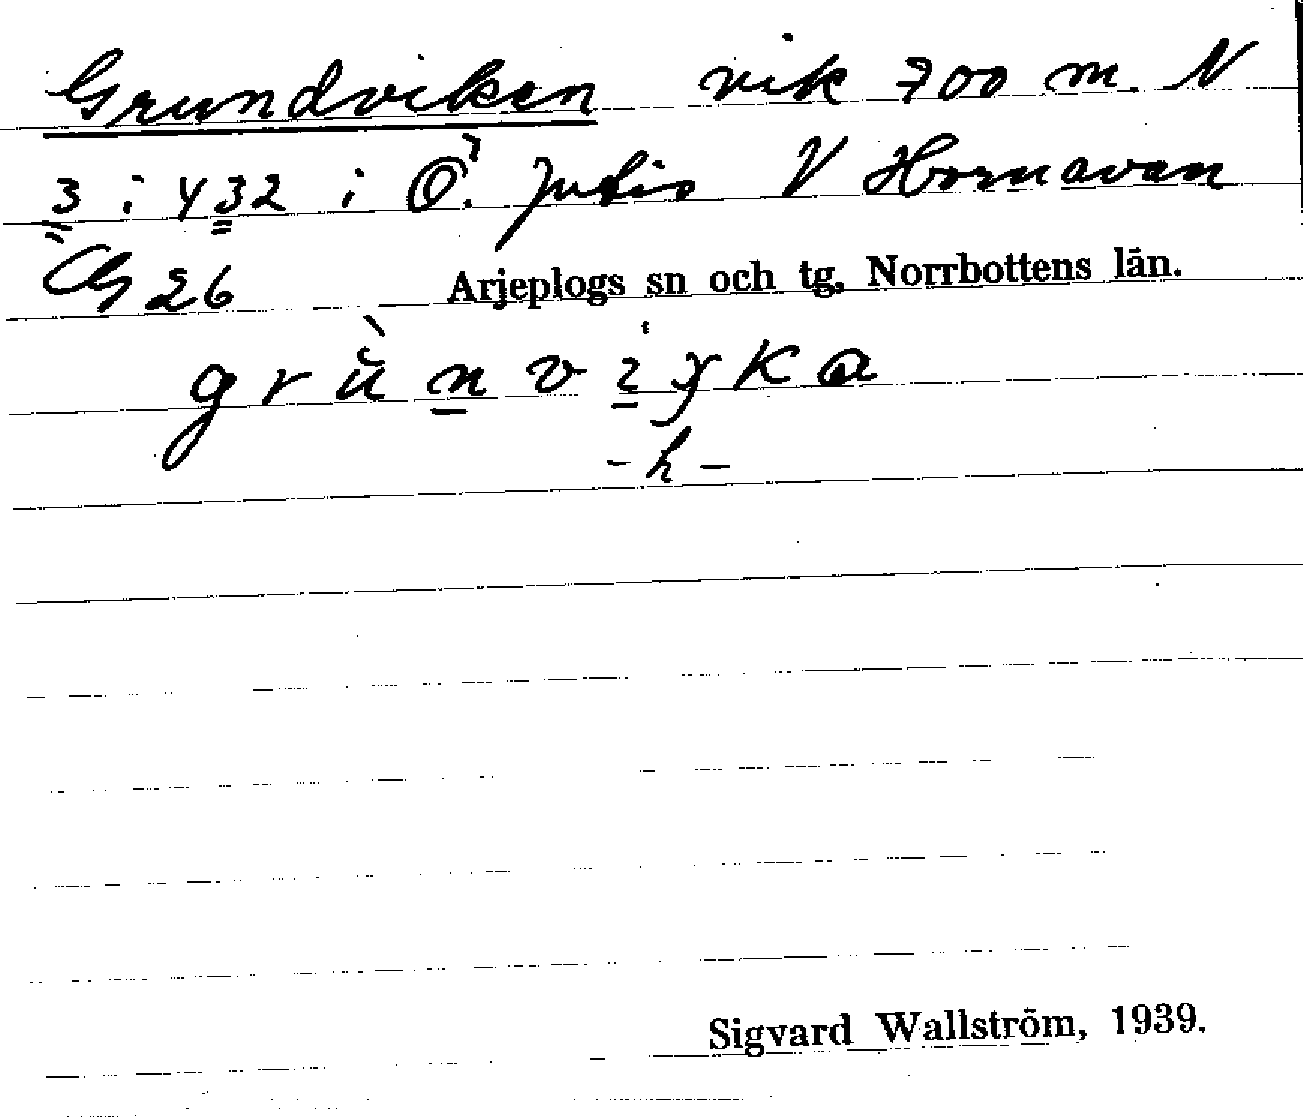 Grundviken vik 700 m. N
3 i 432 i Ö. Jutis V Hornavan
26 Arjeplogs sn och tg, Norrbottens län.
-h-
Sigvard Wallström, 1939.